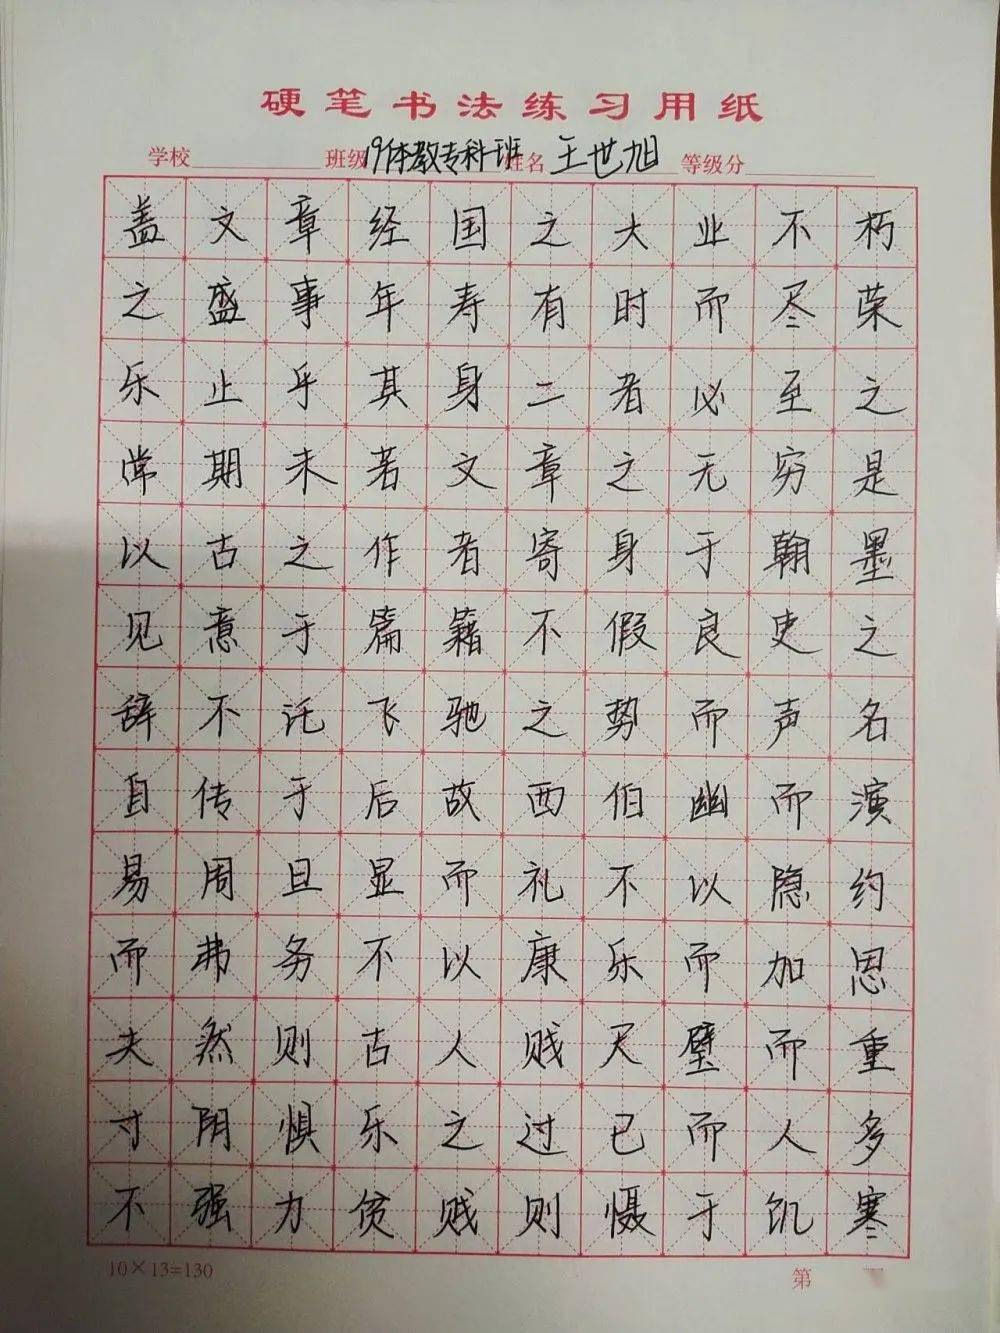 硬笔书法练习用纸
学校 班级 19体教专科班 姓名 王世旭 等级分
盖文章经国之大业不朽
之盛事年寿有时而尽荣
乐止乎其身二者必至之
常期未若文章之无穷是
以古之作者寄身于翰墨
见意于篇籍不假良史之
辞不托飞驰之势而声名
自传于后故西伯幽而演
易周旦显而礼不以隐约
而弗务不以康乐而加思
夫然则古人贱尺璧而重
寸阴惧乐之过已而人多
不强力贫贱则慑于饥寒
10×13=130
第